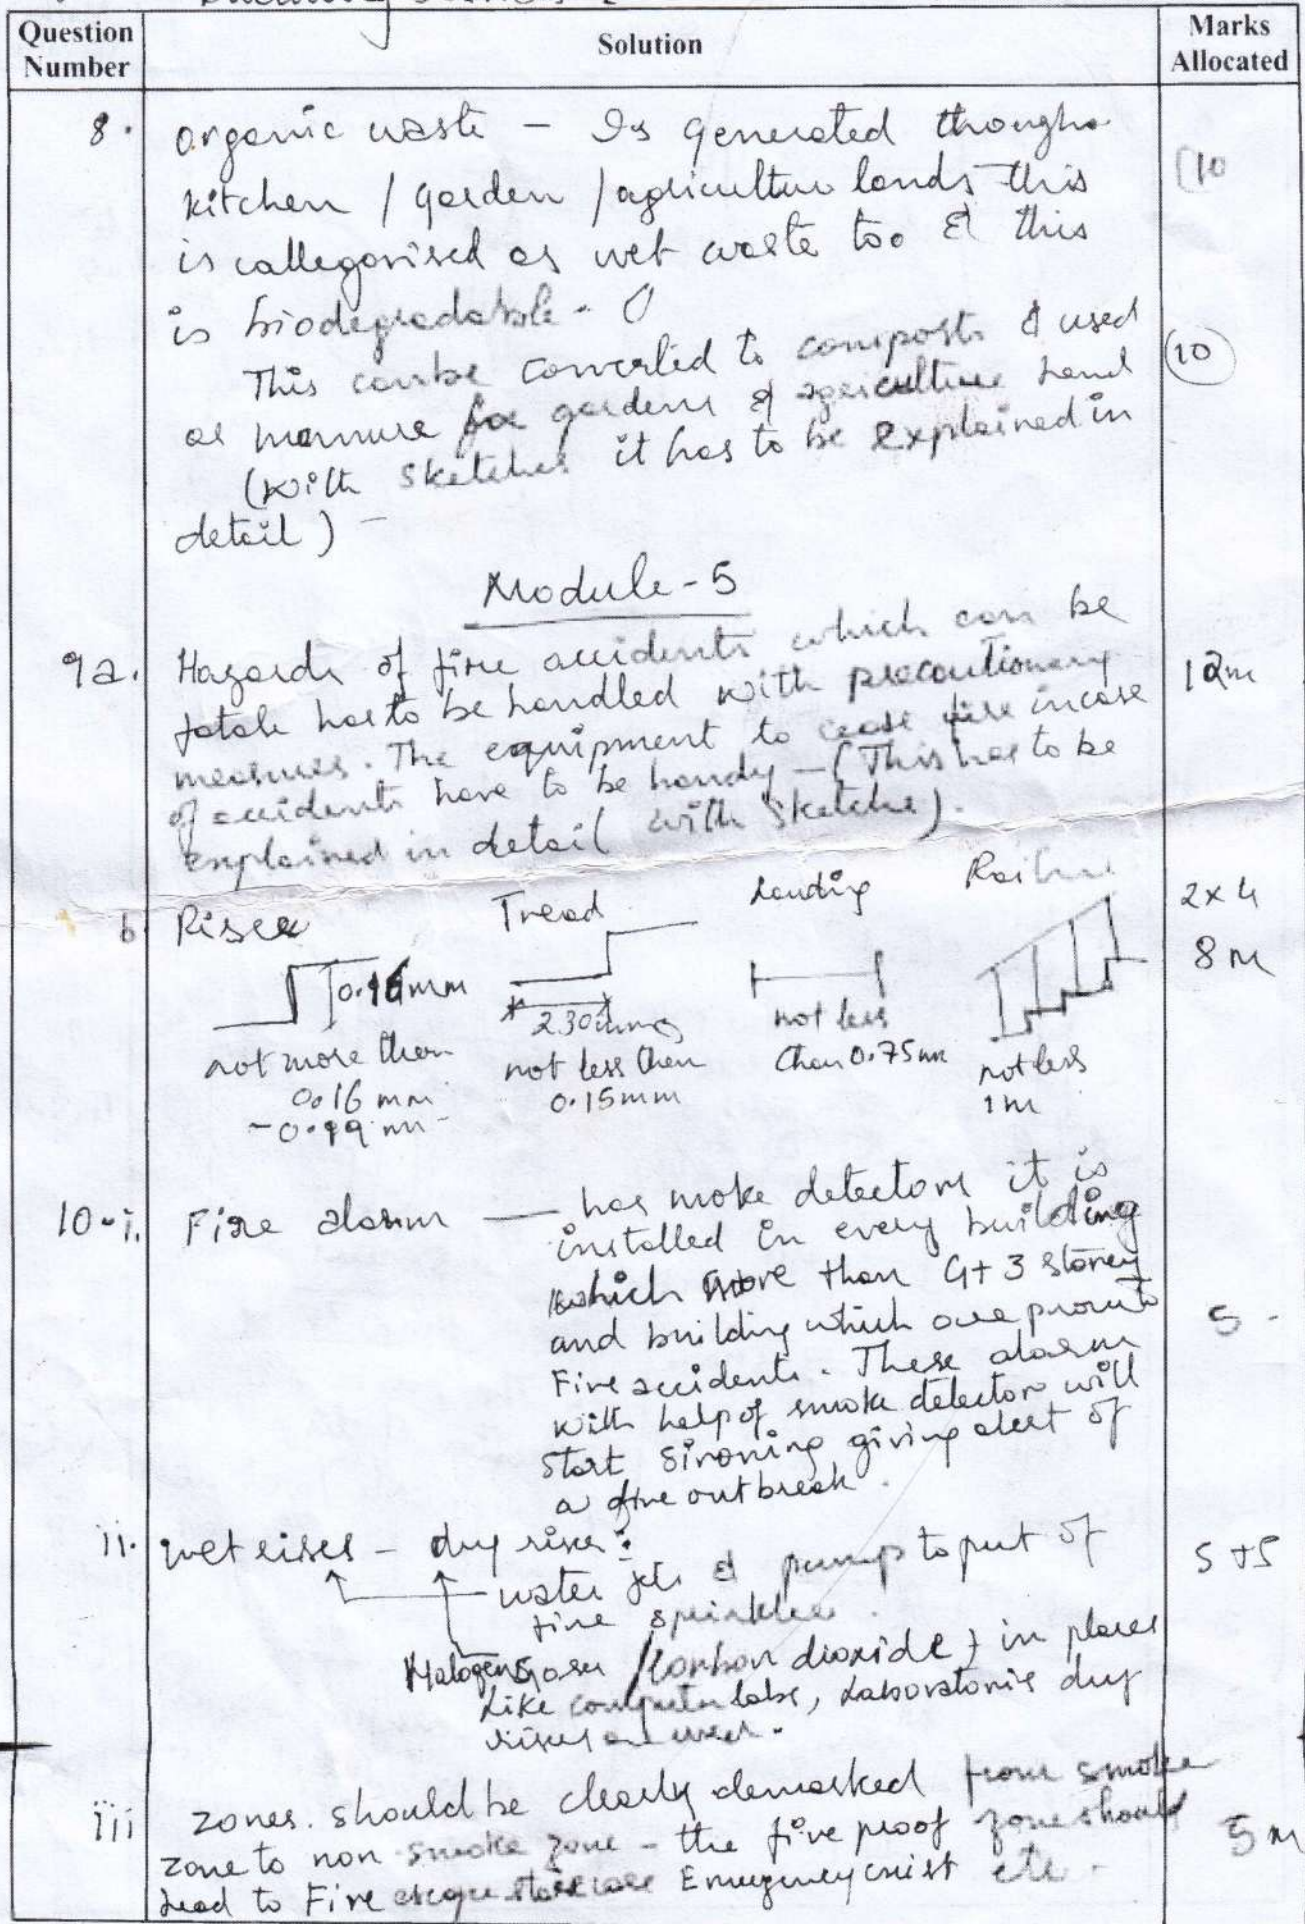 Question Number
Solution
Marks Allocated
8.
organic waste - Is generated through
(10
kitchen / garden / agriculture lands this
is categorised as wet waste too & this
is biodegradable.
This can be converted to composts & used
(10)
as mannure for gardens & agriculture land
(with sketches it has to be explained in
detail) -
Module-5
9a.
Hazards of fire accidents which can be
10m
fatale has to be handled with precautionary
measures. The equipment to cease fire incase
of accidents have to be handy - (This has to be
explained in detail with sketche).
b
Riser
Tread
Landing
2x4
8M
0.16mm
230mm
not more than
0.16 mm
not less than
0.15mm
not less
than 0.75m
not less
1m
10-i.
Fire alarm — has moke detectors it is
installed in every building
which more than G+3 storey
and building which are prone to
5 -
Fire accidents. These alarm
with help of smoke detectors will
start sironing giving alert of
a fire outbreak.
ii.
wet rises - dry riser:
5+5
water jets & pump to put of
fire sprinkler.
Halogen gases / Carbon dioxide) in places
like computer labs, Laboratories dry
iii
zones. should be clearly demarked from smoke
zone to non smoke zone - the fire proof zone should
5m
Lead to Fire escape staircase Emergency exist etc.